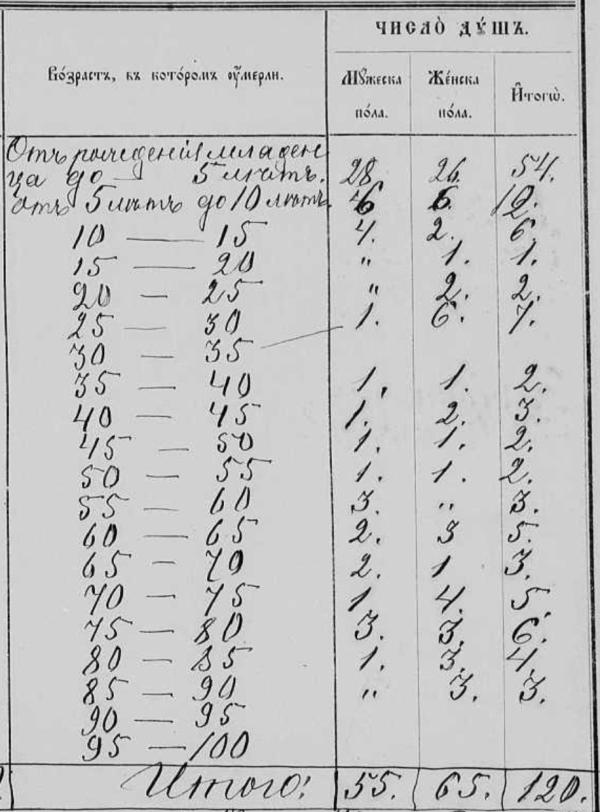 ЧИСЛО̀ ДꙊ́ШЪ.
Во́зрастъ, въ кото́ромъ ᲂу҆́мерли.
Мꙋ́жеска
по́ла.
Же́нска
по́ла.
И҆тогѡ̀.
Отъ рожденія младен
ца до — 5 лѣтъ. 28 26. 54.
отъ 5 лѣтъ до 10 лѣтъ. 6 6. 12.
10 — 15 4. 2. 6
15 — 20 „ 1. 1.
20 — 25 „ 2. 2.
25 — 30 1. 6. 7.
30 — 35
35 — 40 1. 1. 2.
40 — 45 1. 2. 3.
45 — 50 1. 1. 2.
50 — 55 1. 1. 2.
55 — 60 3. „ 3.
60 — 65 2. 3 5.
65 — 70 2. 1 3.
70 — 75 1 4. 5.
75 — 80 3. 3. 6.
80 — 85 1. 3. 4.
85 — 90 „ 3. 3.
90 — 95
95 — 100
Итого: 55. 65. 120.